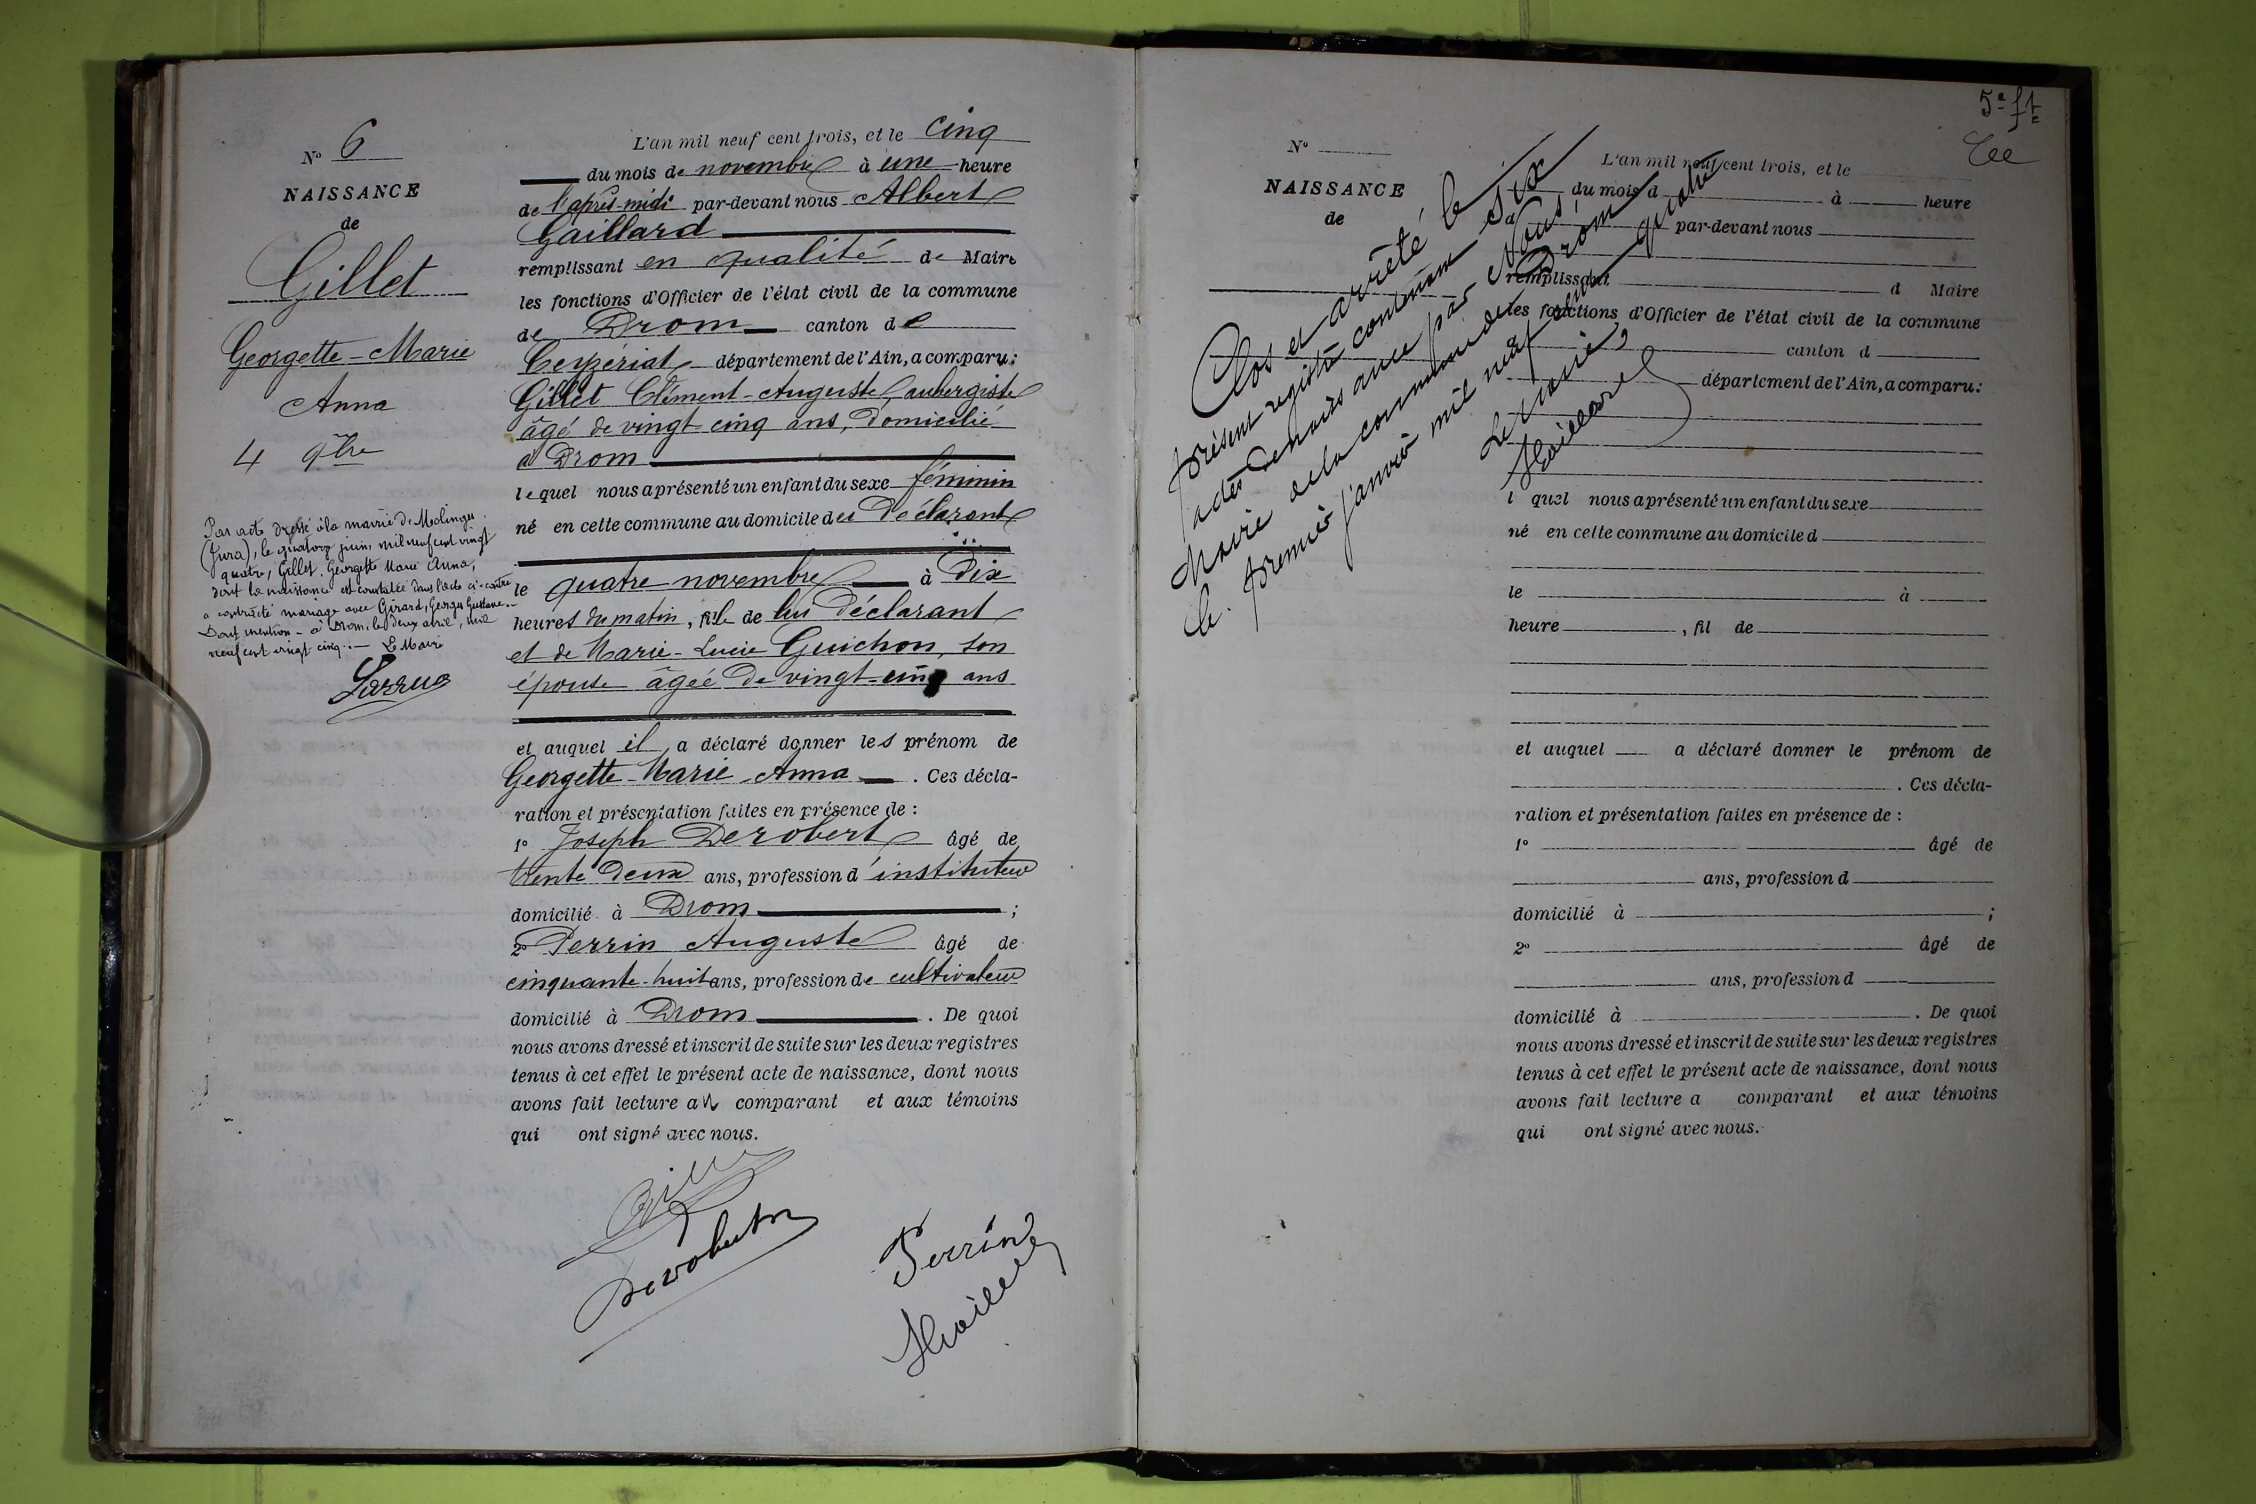 N° 6
NAISSANCE
de
Gillet
Georgette-Marie
Anna
4 9bre
Par acte dressé à la mairie de Molinges
(Jura), le quatorze juin, mil neuf cent vingt
quatre, Gillet, Georgette Marie Anna,
dont la naissance est constatée dans l'acte ci-contre
a contracté mariage avec Girard, Georges Gustave.
Dont mention - à Drom, le deux avril, mil
neuf cent vingt cinq. — Le Maire
L'an mil neuf cent trois, et le cinq
du mois de novembre à une heure
de l'après-midi par-devant nous Albert
Gaillard
remplissant en qualité de Maire
les fonctions d'Officier de l'état civil de la commune
de Drom canton de
Ceyzériat département de l'Ain, a comparu:
Gillet Clément-Auguste, aubergiste
âgé de vingt cinq ans, domicilié
à Drom
lequel nous a présenté un enfant du sexe féminin
né en cette commune au domicile du déclarant
le quatre novembre à dix
heures du matin, fille de lui déclarant
et de Marie-Lucie Guichon, son
épouse âgée de vingt-cinq ans
et auquel il a déclaré donner les prénom de
Georgette-Marie-Anna. Ces décla-
ration et présentation faites en présence de :
1° Joseph Derobert âgé de
trente deux ans, profession d'instituteur
domicilié à Drom ;
2° Perrin Auguste âgé de
cinquante-huit ans, profession de cultivateur
domicilié à Drom. De quoi
nous avons dressé et inscrit de suite sur les deux registres
tenus à cet effet le présent acte de naissance, dont nous
avons fait lecture au comparant et aux témoins
qui ont signé avec nous.
Gillet
Derobert
Perrin
Gaillard
5e ft
N°
NAISSANCE
de
Clos et arrêté le
présent registre contenant six
actes de naissance par Nous,
Maire de la commune de Drom
le premier janvier mil neuf cent quatre
Le Maire,
Gaillard
L'an mil neuf cent trois, et le
du mois d à heure
par-devant nous
remplissant d Maire
les fonctions d'Officier de l'état civil de la commune
canton d
département de l'Ain, a comparu:
l quel nous a présenté un enfant du sexe
né en cette commune au domicile d
le à
heure , fil de
et auquel a déclaré donner le prénom de
. Ces décla-
ration et présentation faites en présence de :
1° âgé de
ans, profession d
domicilié à ;
2° âgé de
ans, profession d
domicilié à . De quoi
nous avons dressé et inscrit de suite sur les deux registres
tenus à cet effet le présent acte de naissance, dont nous
avons fait lecture a comparant et aux témoins
qui ont signé avec nous.